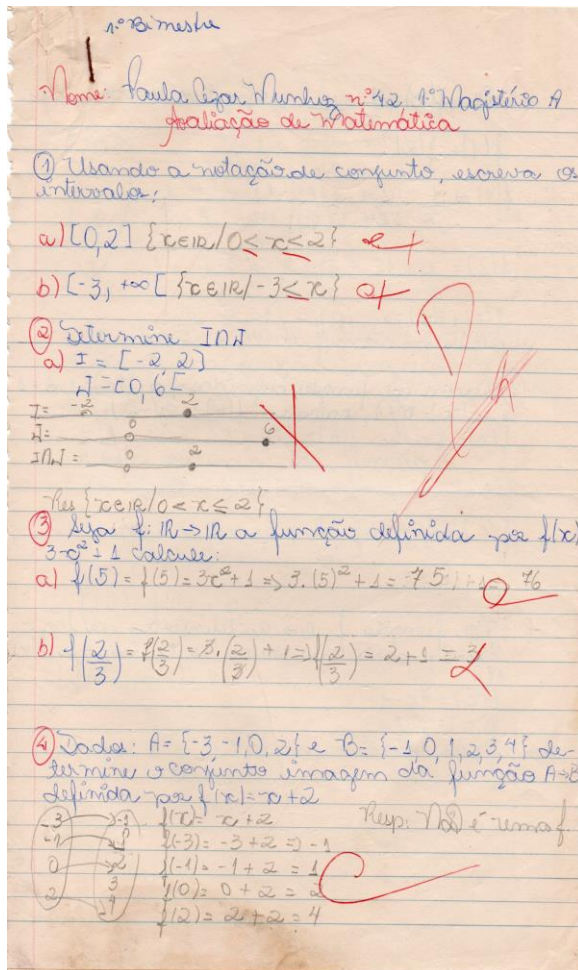 1º Bimestre
Nome: Paula Cezar Munhoz nº 42 1º Magistério A
Avaliação de Matemática
① Usando a notação de conjunto, escreva os
intervalos:
a) [0,2] {x∈IR/0≤x≤2} c
b) [-3, +∞[ {x∈IR/-3≤x} c
② Determine I∩J
a) I = [-2, 2]
J = [0,6[
I= -2 2
J= 0 6
I∩J= 0 2
Res {x∈IR/0<x≤2}
③ Seja f: IR→IR a função definida por f(x)
3x²+1 calcule:
a) f(5) = f(5) = 3x²+1 => 3.(5)²+1 = 75+1= 76
b) f(2/3) = f(2/3) = 3.(2/3)+1 => f(2/3) = 2+1 = 3
④ Dados: A= {-3 -1,0,2} e B= {-1,0,1,2,3,4} de-
termine o conjunto imagem da função A→B
definida por f(x)=x+2
-3 -1 f(x)= x+2 Resp: Não é uma f.
-1 f(-3)= -3+2 => -1
0 2 f(-1)= -1+2 = 1
3 f(0)= 0+2 = 2
2 4 f(2)= 2+2=4